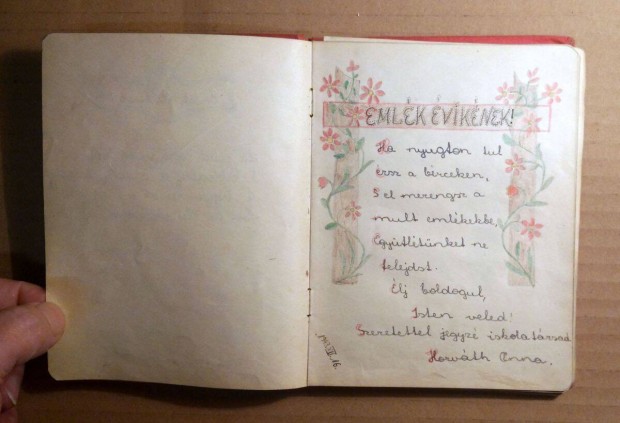 EMLÉK ÉVIKÉNEK!
Ha nyugton tul
érsz a bérceken,
S el merengsz a
mult emlékekbe,
Együtlétünket ne
felejdst.
Élj boldogul,
Isten veled!
Szeretettel jegyzé iskolatársad
Horváth Anna.